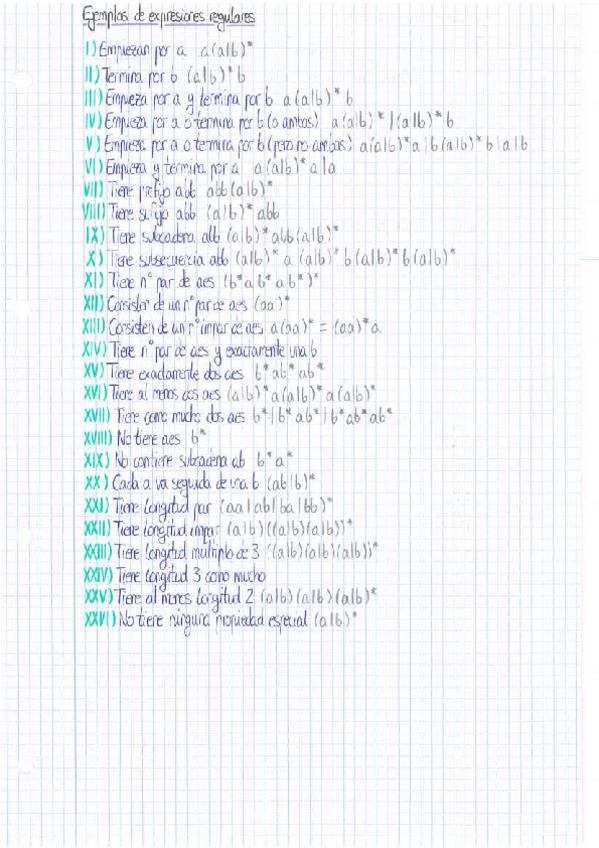 Ejemplos de expresiones regulares
I) Empiezan por a a(a|b)*
II) Termina por b (a|b)*b
III) Empieza por a y termina por b a(a|b)*b
IV) Empieza por a o termina por b (o ambos) a(a|b)*|(a|b)*b
V) Empieza por a o termina por b (pero no ambos) a(a|b)*a|b(a|b)*b|a|b
VI) Empieza y termina por a a(a|b)*a|a
VII) Tiene prefijo abb abb(a|b)*
VIII) Tiene sufijo abb (a|b)*abb
IX) Tiene subcadena abb (a|b)*abb(a|b)*
X) Tiene subsecuencia abb (a|b)*a(a|b)*b(a|b)*b(a|b)*
XI) Tiene nº par de aes (b*ab*ab*)*
XII) Consisten de un nº par de aes (aa)*
XIII) Consisten de un nº impar de aes a(aa)* = (aa)*a
XIV) Tiene nº par de aes y exactamente una b
XV) Tiene exactamente dos aes b*ab*ab*
XVI) Tiene al menos dos aes (a|b)*a(a|b)*a(a|b)*
XVII) Tiene como mucho dos aes b*|b*ab*|b*ab*ab*
XVIII) No tiene aes b*
XIX) No contiene subcadena ab b*a*
XX) Cada a va seguida de una b (ab|b)*
XXI) Tiene longitud par (aa|ab|ba|bb)*
XXII) Tiene longitud impar (a|b)((a|b)(a|b))*
XXIII) Tiene longitud múltiplo de 3 ((a|b)(a|b)(a|b))*
XXIV) Tiene longitud 3 como mucho
XXV) Tiene al menos longitud 2 (a|b)(a|b)(a|b)*
XXVI) No tiene ninguna propiedad especial (a|b)*